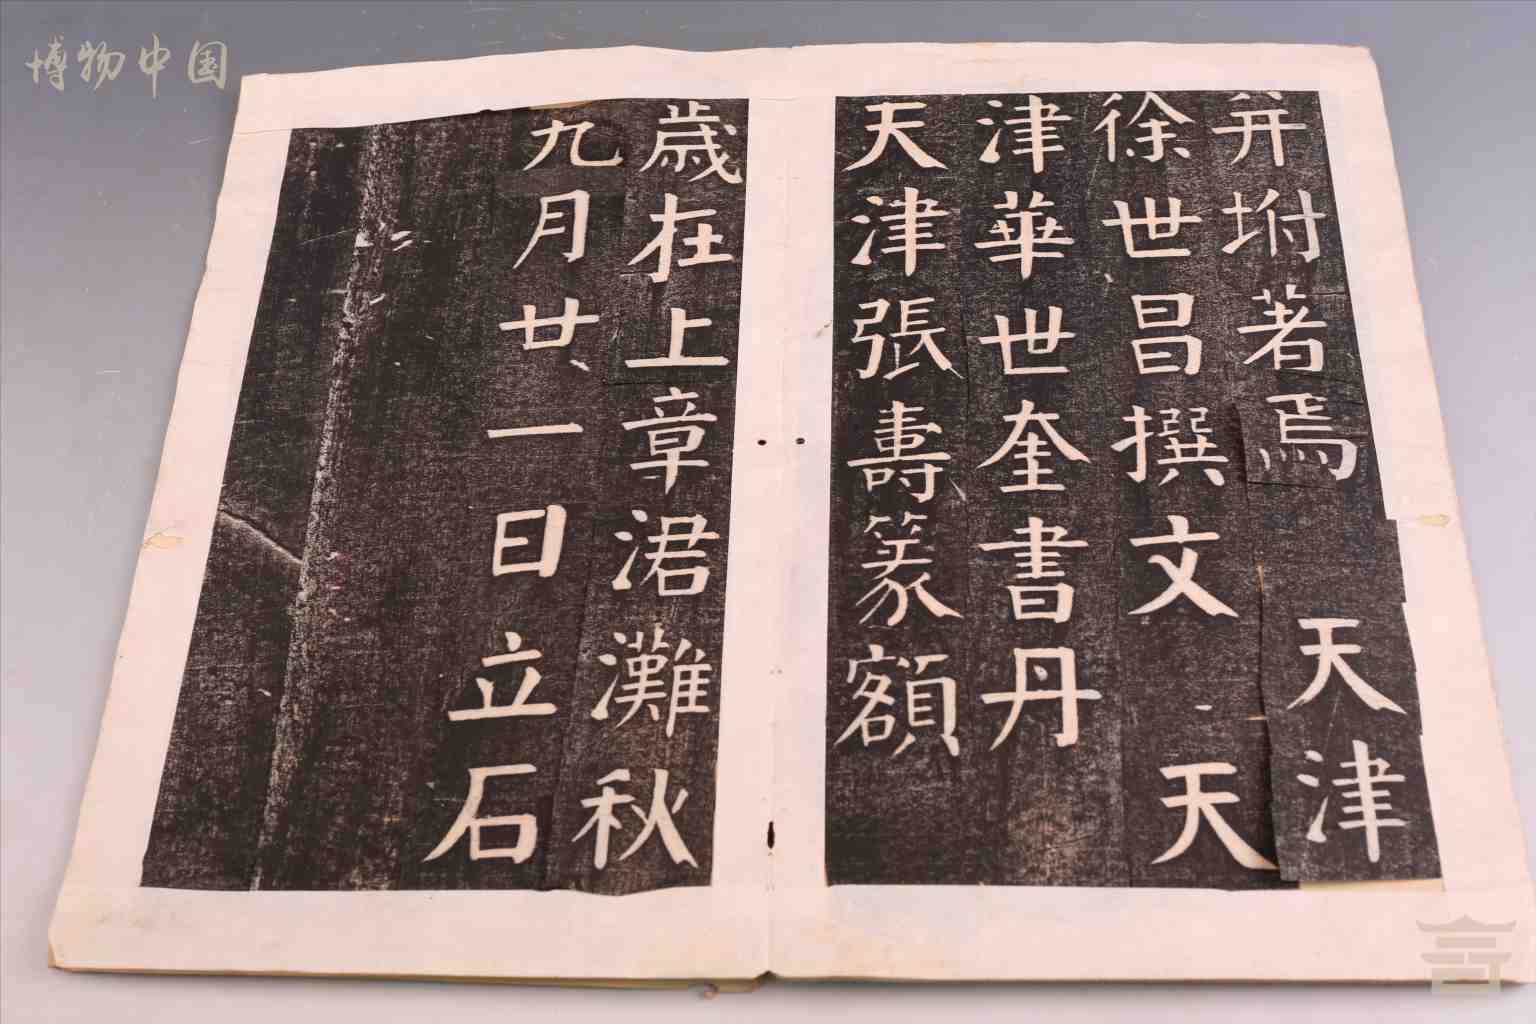 博物中国
并坿著焉 天津
徐世昌撰文 天
津華世奎書丹
天津張壽篆額
歲在上章涒灘秋
九月廿一日立石